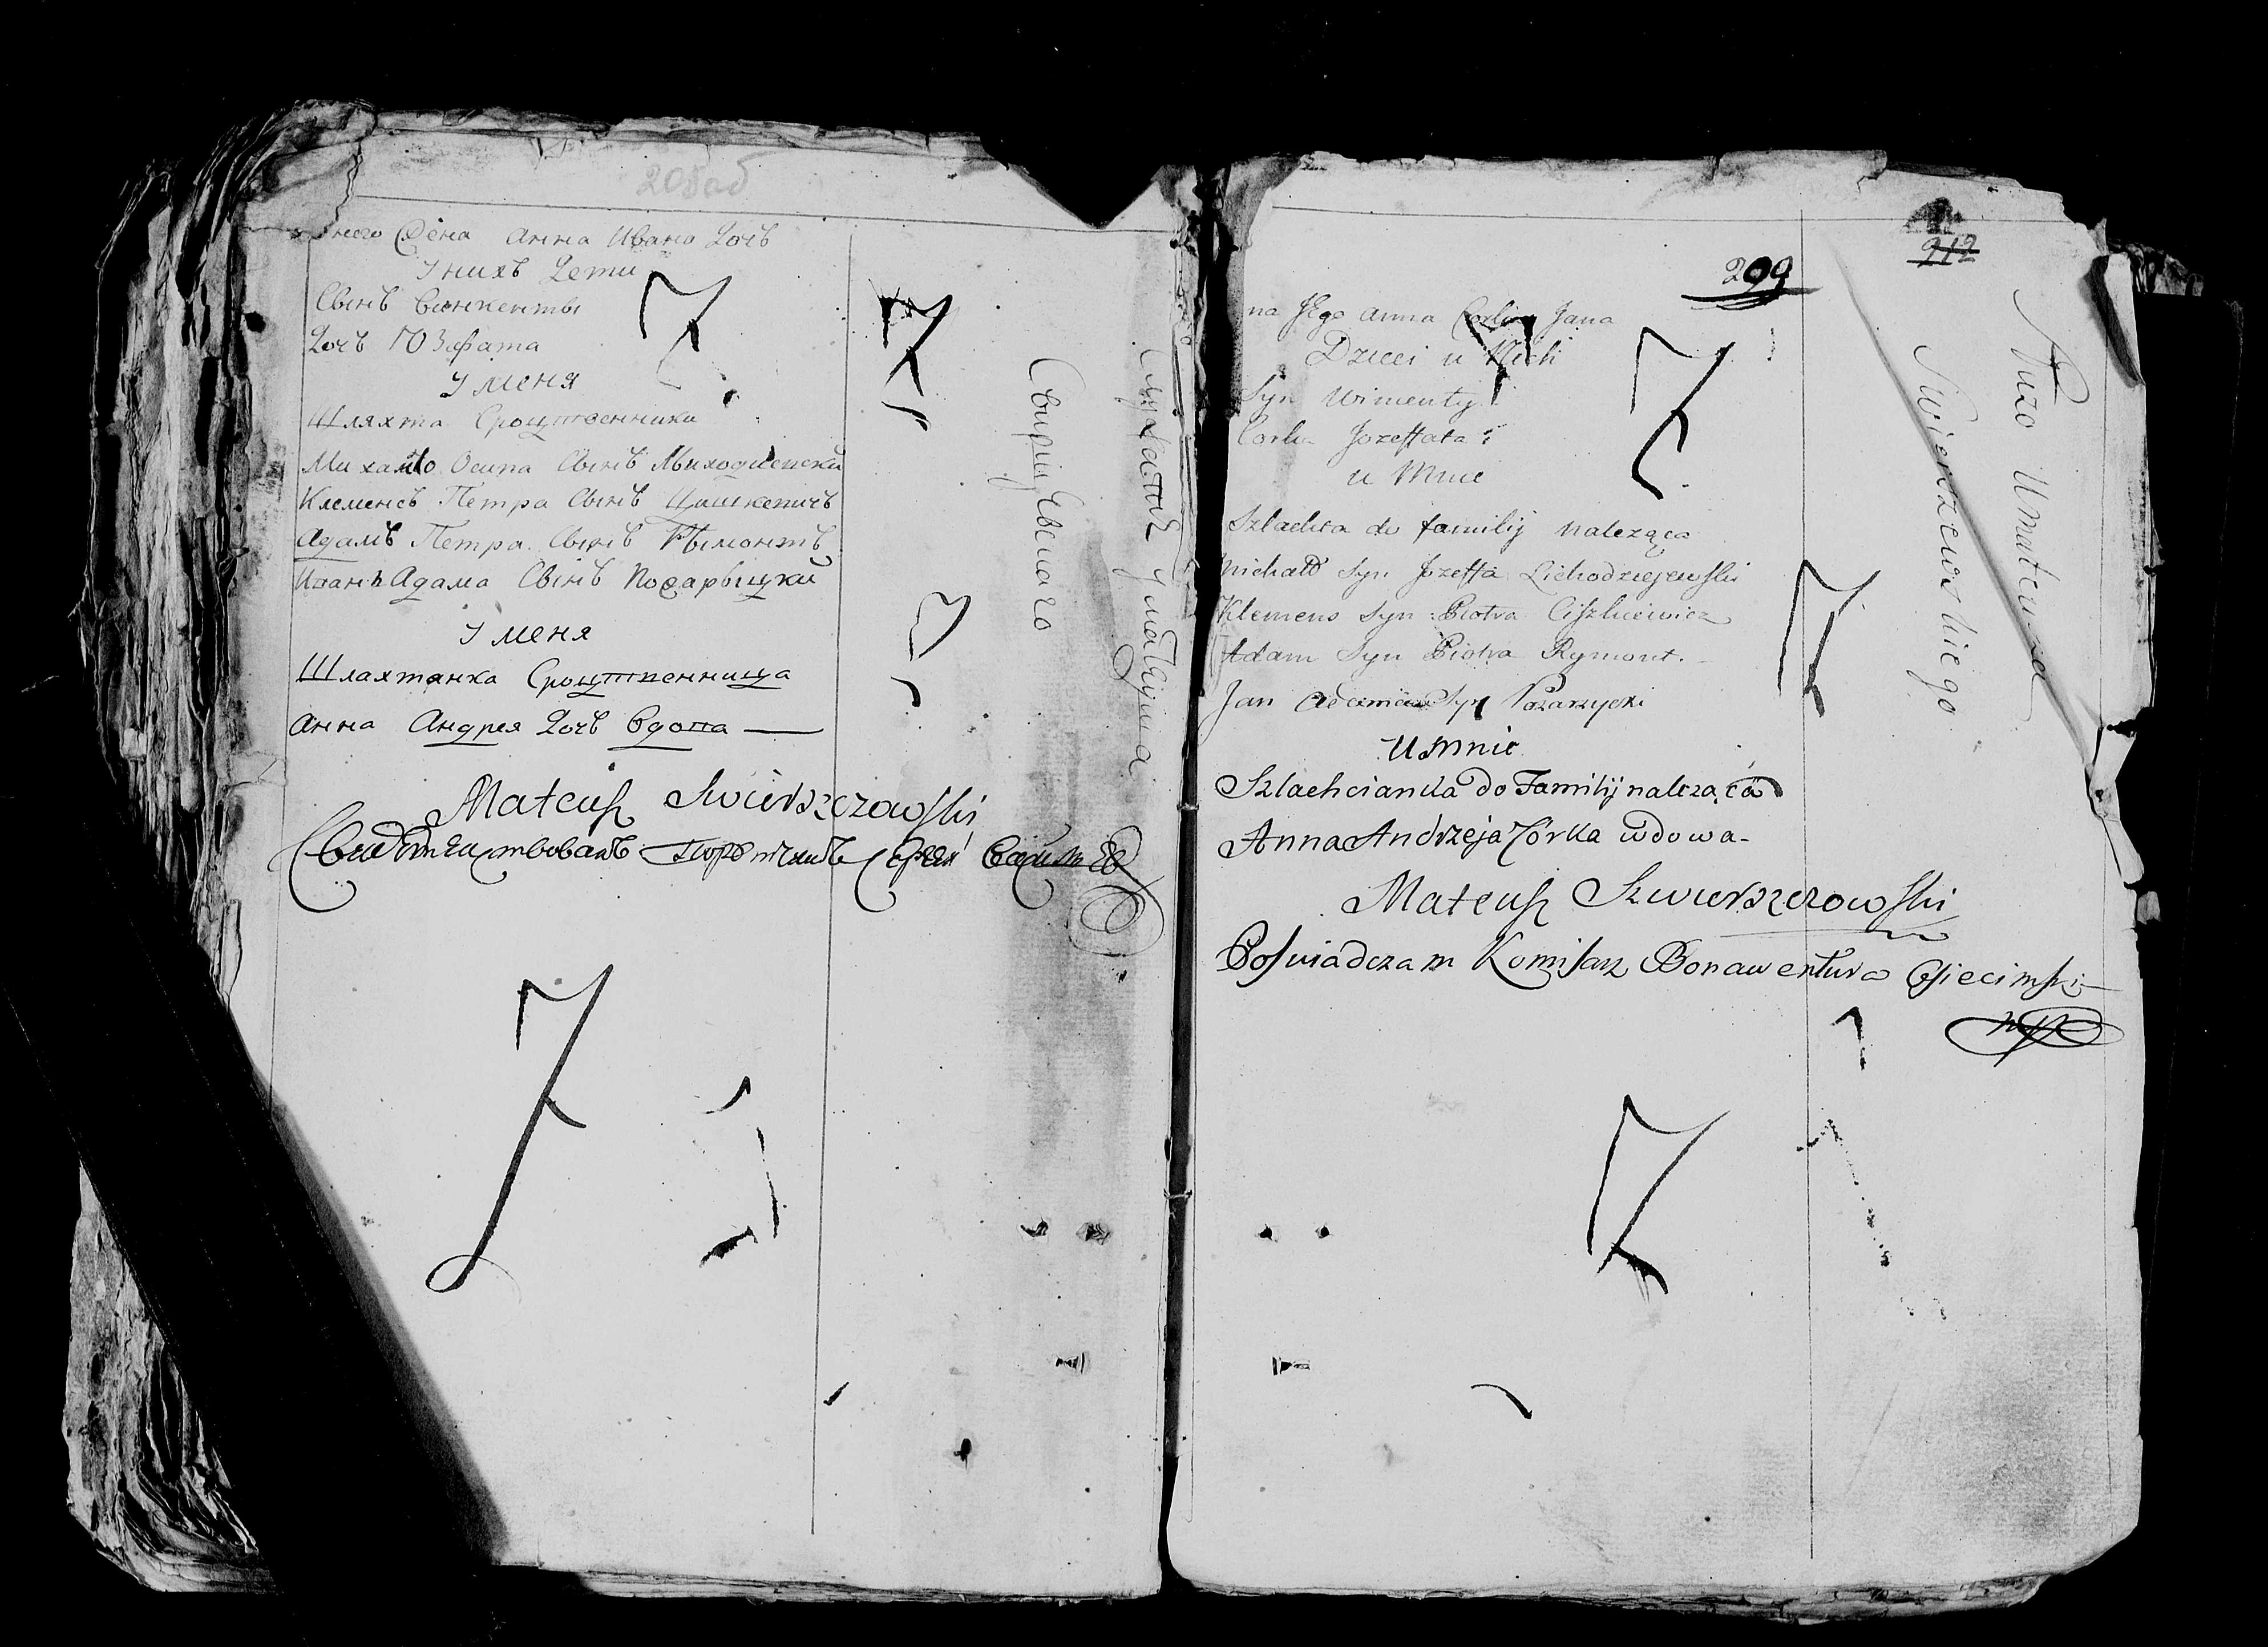 205об
него Жена Анна Ивана Дочъ
У нихъ Дети
Сынъ Винкенты
Дочъ Юзефата
У меня
Шляхта Сроцтвенники
Михайло Осипа Сынъ Лиходиевски
Клеменсъ Петра Сынъ Цишкевичъ
Адамъ Петра Сынъ Рымонтъ
Иванъ Адама Сынъ Пожарыцки
У меня
Шляхтянка Сроцтвенница
Анна Андрея Дочъ вдова
Mateusz Swierszczowski
Свидетельствовалъ Порутчикъ
Служатъ У матеуша
299
212
na Jego Anna Corka Jana
Dzieci u Nich
Syn Wincenty
Corka Jozeffata
u Mnie
Szlachta do familij należąca
Michał Syn Jozeffa Lichodziejewski
Klemens Syn Piotra Ciszkiewicz
Adam Syn Piotra Rymont.
Jan Adama Syn Pozarzycki
U Mnie
Szlachcianka do Familij należąca
Anna Andrzeja Córka wdowa-
Mateusz Szwierszczowski
Poswiadczam Komisarz Bonawentura Osiecimski
mpp
Służo U mateusza
Swierszczewskiego